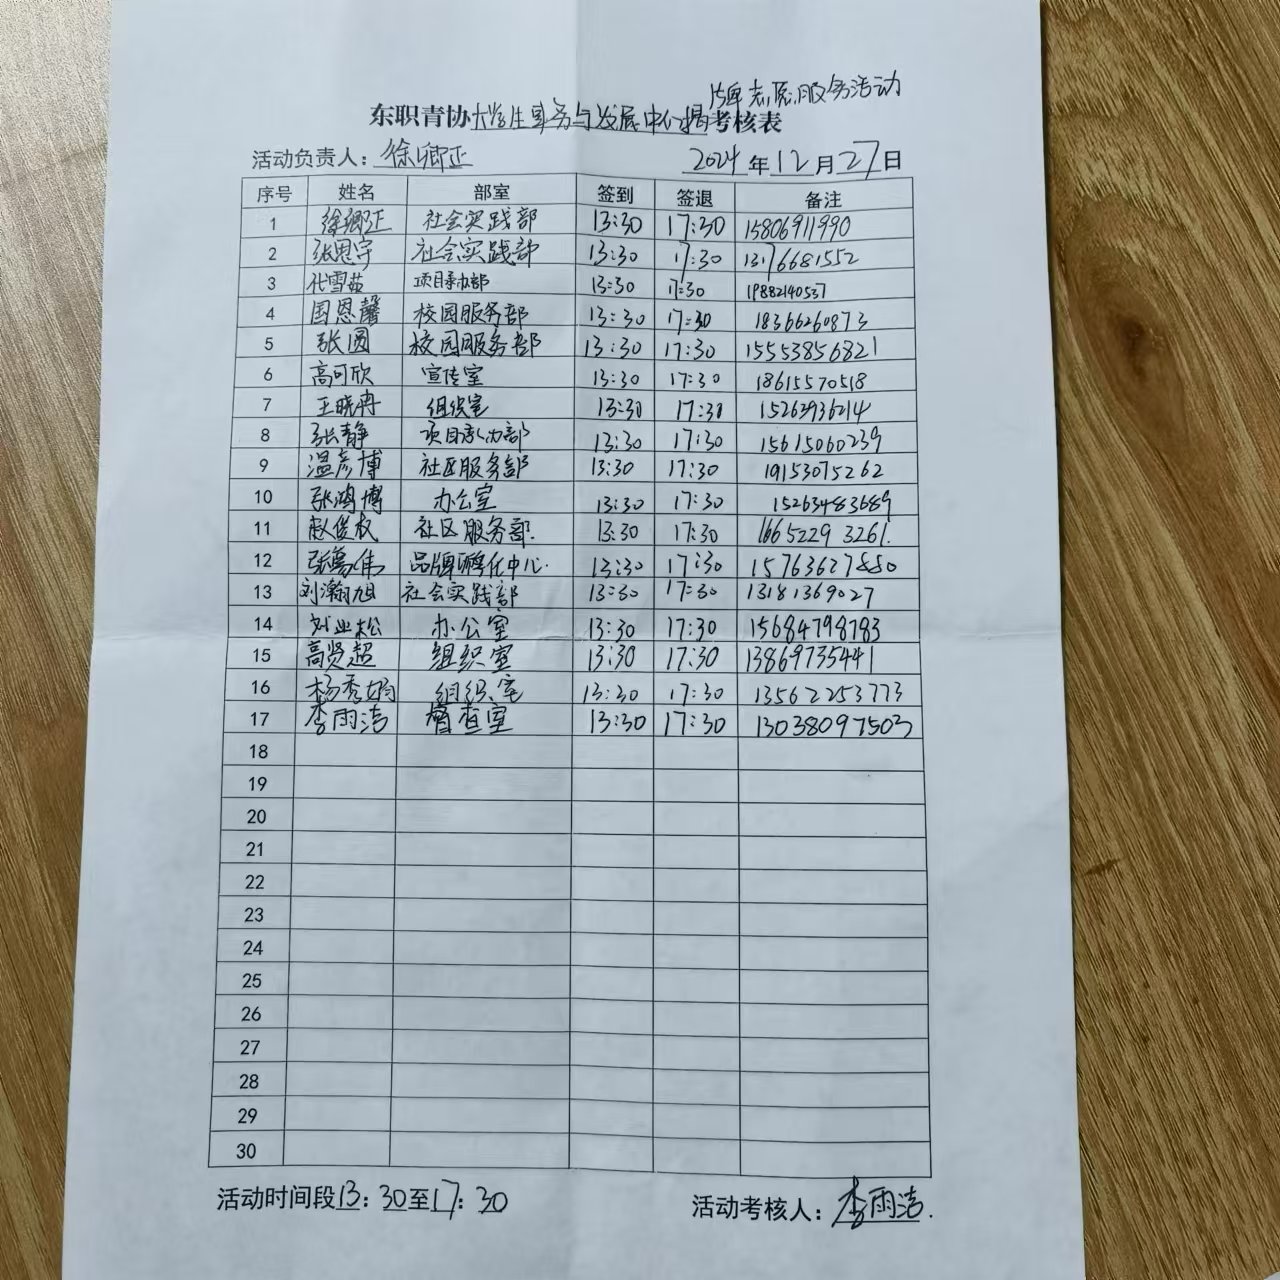 牌志愿服务活动
东职青协大学生事务与发展中心揭考核表
活动负责人：徐卿正 2024年12月27日
序号 姓名 部室 签到 签退 备注
1 徐卿正 社会实践部 13:30 17:30 15806911990
2 张思宇 社会实践部 13:30 17:30 13176681552
3 代雪茹 项目承办部 13:30 17:30 19882140537
4 国恩馨 校园服务部 13:30 17:30 18366260873
5 张圆 校园服务部 13:30 17:30 15553856821
6 高可欣 宣传室 13:30 17:30 18615570518
7 王晓冉 组织室 13:30 17:30 15262936214
8 张静 项目承办部 13:30 17:30 15615060239
9 温彦博 社区服务部 13:30 17:30 19153075262
10 张鸿博 办公室 13:30 17:30 15263483689
11 赵俊权 社区服务部. 13:30 17:30 16652293261.
12 品牌孵化中心. 13:30 17:30 15763627880
13 刘瀚旭 社会实践部 13:30 17:30 13181369027
14 刘业松 办公室 13:30 17:30 15684798783
15 高贤超 组织室 13:30 17:30 13869735441
16 杨秀娟 组织室 13:30 17:30 13562253773
17 李雨洁 督查室 13:30 17:30 13038097503
18
19
20
21
22
23
24
25
26
27
28
29
30
活动时间段13：30至17：30 活动考核人：李雨洁.